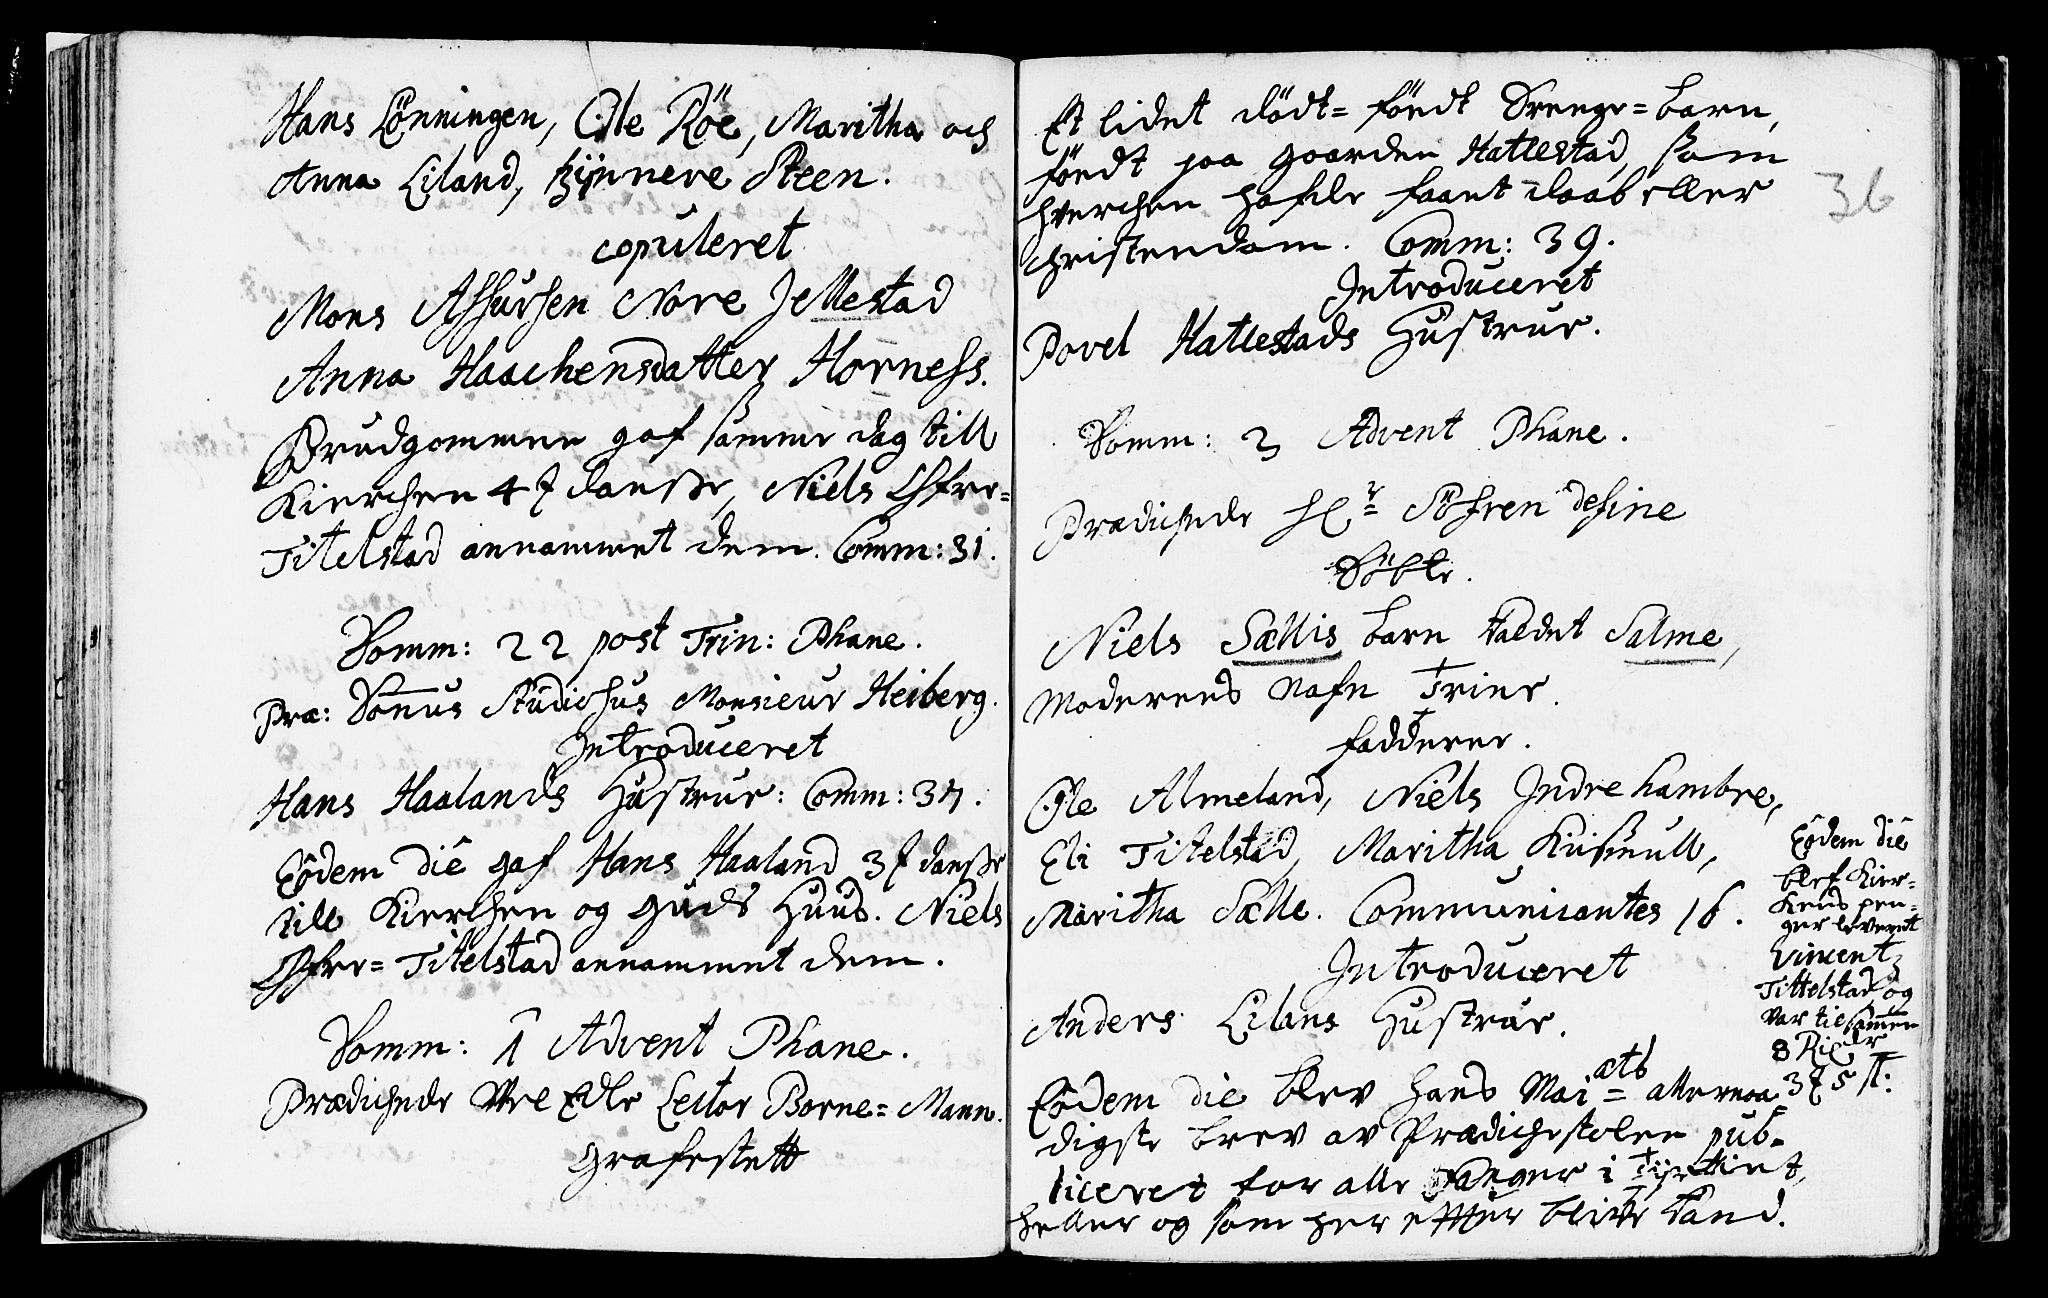 Hans Lönningen, Olle Röe, Maritha och
Anna Liland, Synneve Steen.
copuleret
Mons Assursen Nore Jellestad
Anna Haachensdatter Horness.
Brudgommen gaf samme dag till
Kierchen 4 ʒ danske, Niels Øfre=
Titelstad annammet dem. Comm: 31.
Domm: 22 post Trin: Phane.
Præ: Domus Studiosus Monsieur Heiberg.
Introduceret
Hans Haalands Hustrue: Comm: 37.
Eodem die gaf Hans Haaland 3 ʒ danske
till Kierchen og Guds Huus. Niels
Øfre= Titelstad annammet dem.
Domm: 1 Advent Phane.
Prædichede Vel Edle Lector Borne=Mann.
Grafestett
Et lidet dödt=födt Drenge=barn,
födt paa gaarden Hatlestad, som
hverchen hafde faaet daab eller
christendom. Comm: 39.
Introduceret
Povel Hatlestads Hustrue.
36
Domm: 3 Advent Phane.
Prædichede Hr Söfren desine
Döbte.
Niels Sællis barn kaldet Salme,
Moderens Nafn Trine.
Fadderer.
Olle Almeland, Niels Indre hambre,
Eli Titelstad, Maritha
Maritha Sælle. Communicantes 16.
Introduceret
Anders Lilans Hustrue.
Eodem die blev hans Mai=æts allernaa
digste brev av Prædichestolen pub=
liceret for alle Fanger i Tyrkiet,
heller og som her effter blive tand.
Eodem die
blef Kier=
kens pen=
ger leveret
Vincentz
Tittelstad og
var tilsammen
8 Rixdr
3 ʒ 5 sl: